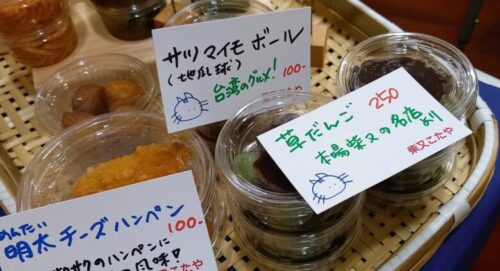 サツマイモボール
(地瓜球)
台湾のグルメ!
100-
草だんご
250
本場柴又の名店より
柴又こたや
めんたい
明太チーズハンペン
100-
サクのハンペンに
風味!
柴又こたや